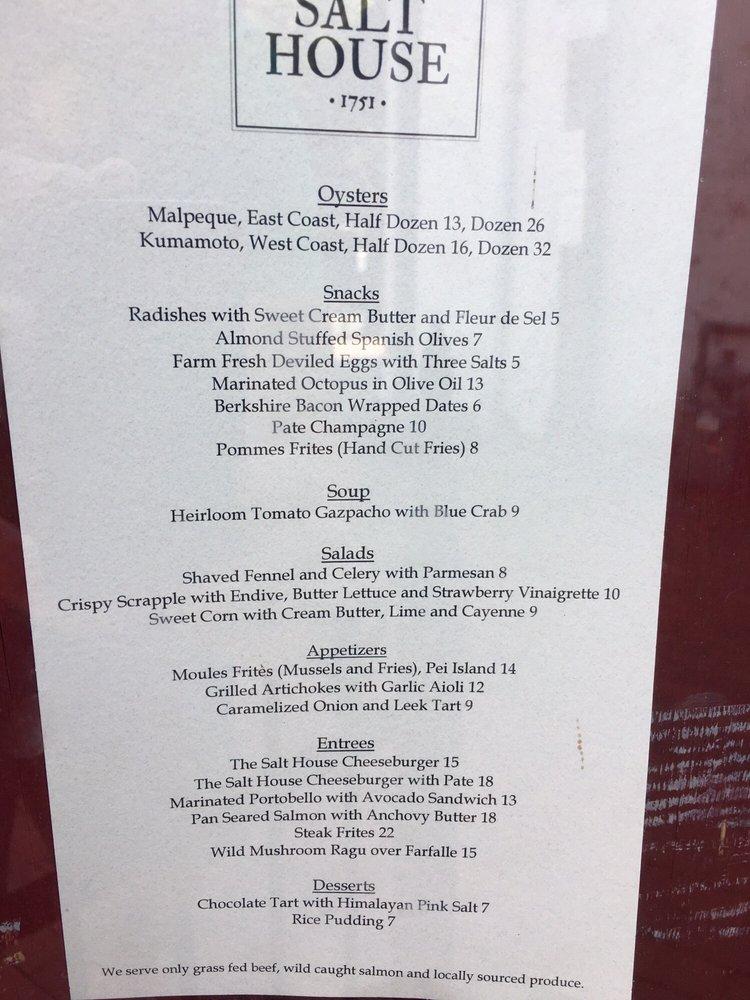 SALT
HOUSE
• 1751 •
Oysters
Malpeque, East Coast, Half Dozen 13, Dozen 26
Kumamoto, West Coast, Half Dozen 16, Dozen 32
Snacks
Radishes with Sweet Cream Butter and Fleur de Sel 5
Almond Stuffed Spanish Olives 7
Farm Fresh Deviled Eggs with Three Salts 5
Marinated Octopus in Olive Oil 13
Berkshire Bacon Wrapped Dates 6
Pate Champagne 10
Pommes Frites (Hand Cut Fries) 8
Soup
Heirloom Tomato Gazpacho with Blue Crab 9
Salads
Shaved Fennel and Celery with Parmesan 8
Crispy Scrapple with Endive, Butter Lettuce and Strawberry Vinaigrette 10
Sweet Corn with Cream Butter, Lime and Cayenne 9
Appetizers
Moules Fritès (Mussels and Fries), Pei Island 14
Grilled Artichokes with Garlic Aioli 12
Caramelized Onion and Leek Tart 9
Entrees
The Salt House Cheeseburger 15
The Salt House Cheeseburger with Pate 18
Marinated Portobello with Avocado Sandwich 13
Pan Seared Salmon with Anchovy Butter 18
Steak Frites 22
Wild Mushroom Ragu over Farfalle 15
Desserts
Chocolate Tart with Himalayan Pink Salt 7
Rice Pudding 7
We serve only grass fed beef, wild caught salmon and locally sourced produce.